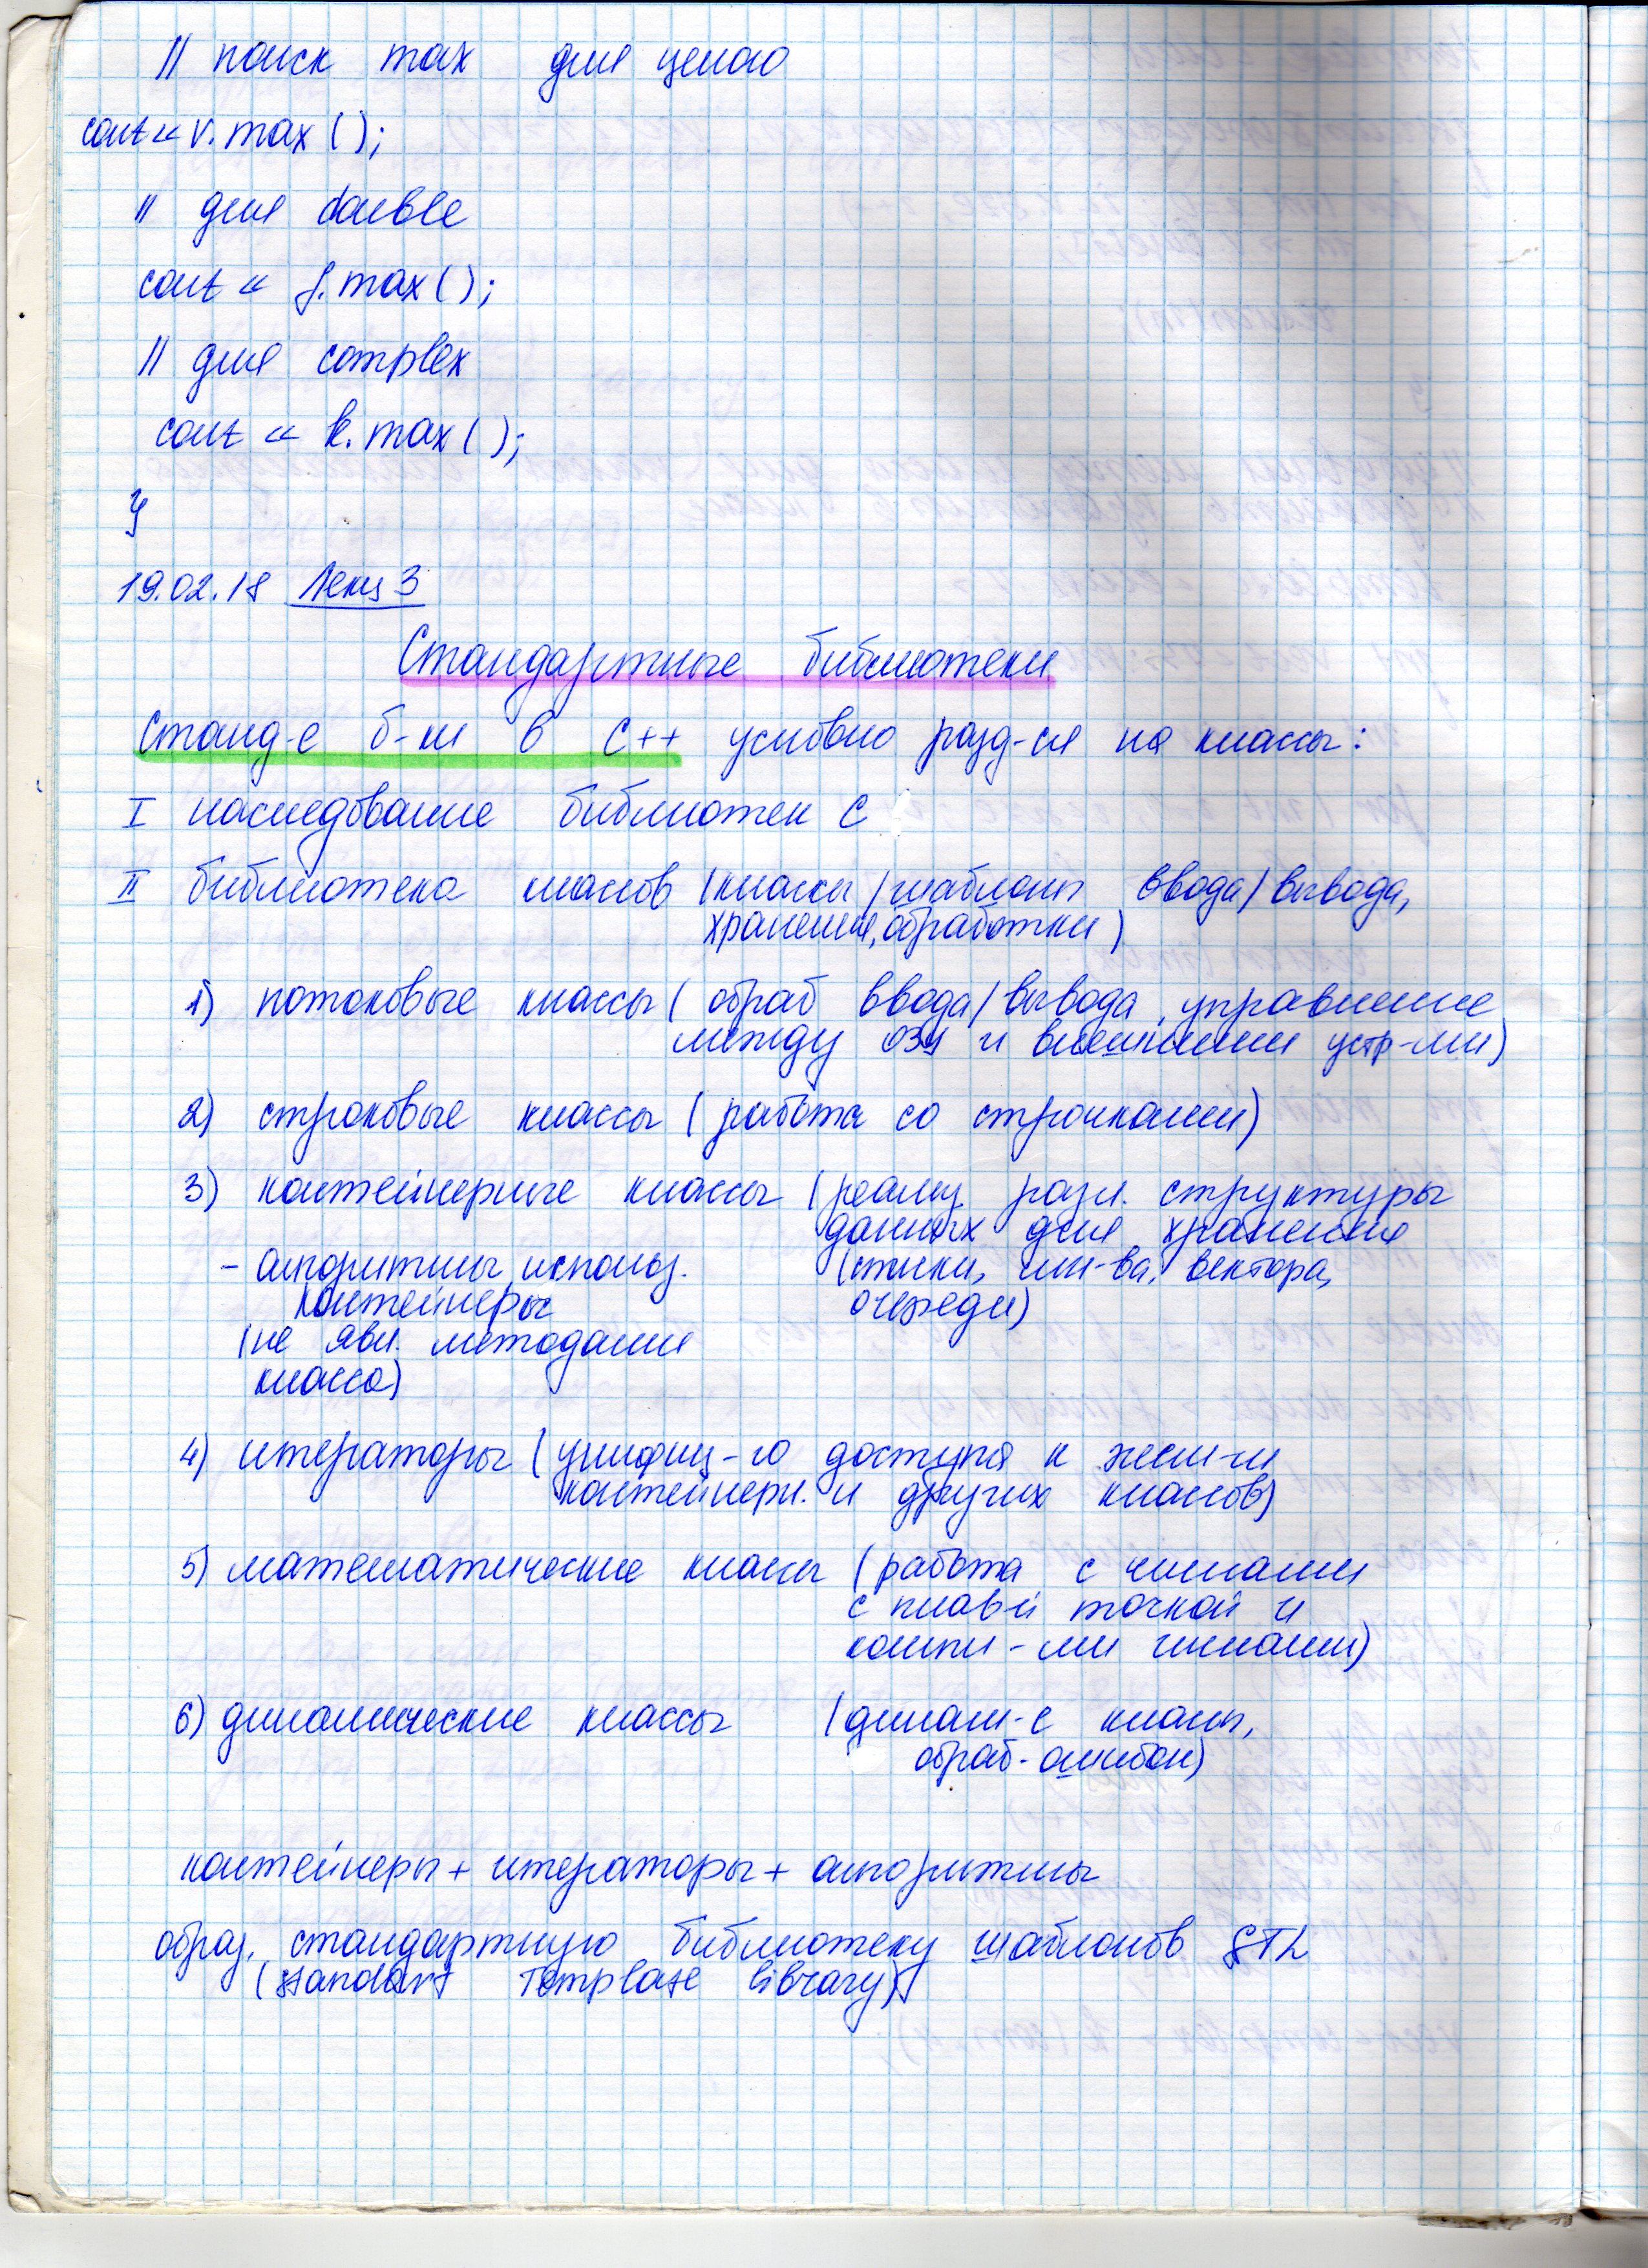 // поиск max для целого
cout << v.max();
// для double
cout << f.max();
// для complex
cout << k.max();
}
19.02.18 Лекц 3
Стандартные библиотеки
Станд-е б-ки в C++ условно разд-ся на классы:
I наследование библиотек C
II библиотека классов (классы/шаблоны ввода/вывода,
хранения, обработки)
1) потоковые классы (обраб ввода/вывода, управление
между ОЗУ и внешними устр-ми)
2) строковые классы (работа со строками)
3) контейнерные классы (реализ. разл. структуры
данных для хранения
(стеки, мн-ва, вектора,
очереди)
- алгоритмы, использ.
контейнеры
(не явл. методами
класса)
4) итераторы (унифиц-го доступа к элем-м
контейнерн. и других классов)
5) математические классы (работа с числами
с плав-й точкой и
компл-ми числами)
6) динамические классы (динам-е классы,
обраб-ошибок)
контейнеры + итераторы + алгоритмы
образ. стандартную библиотеку шаблонов STL
(standart Template library)